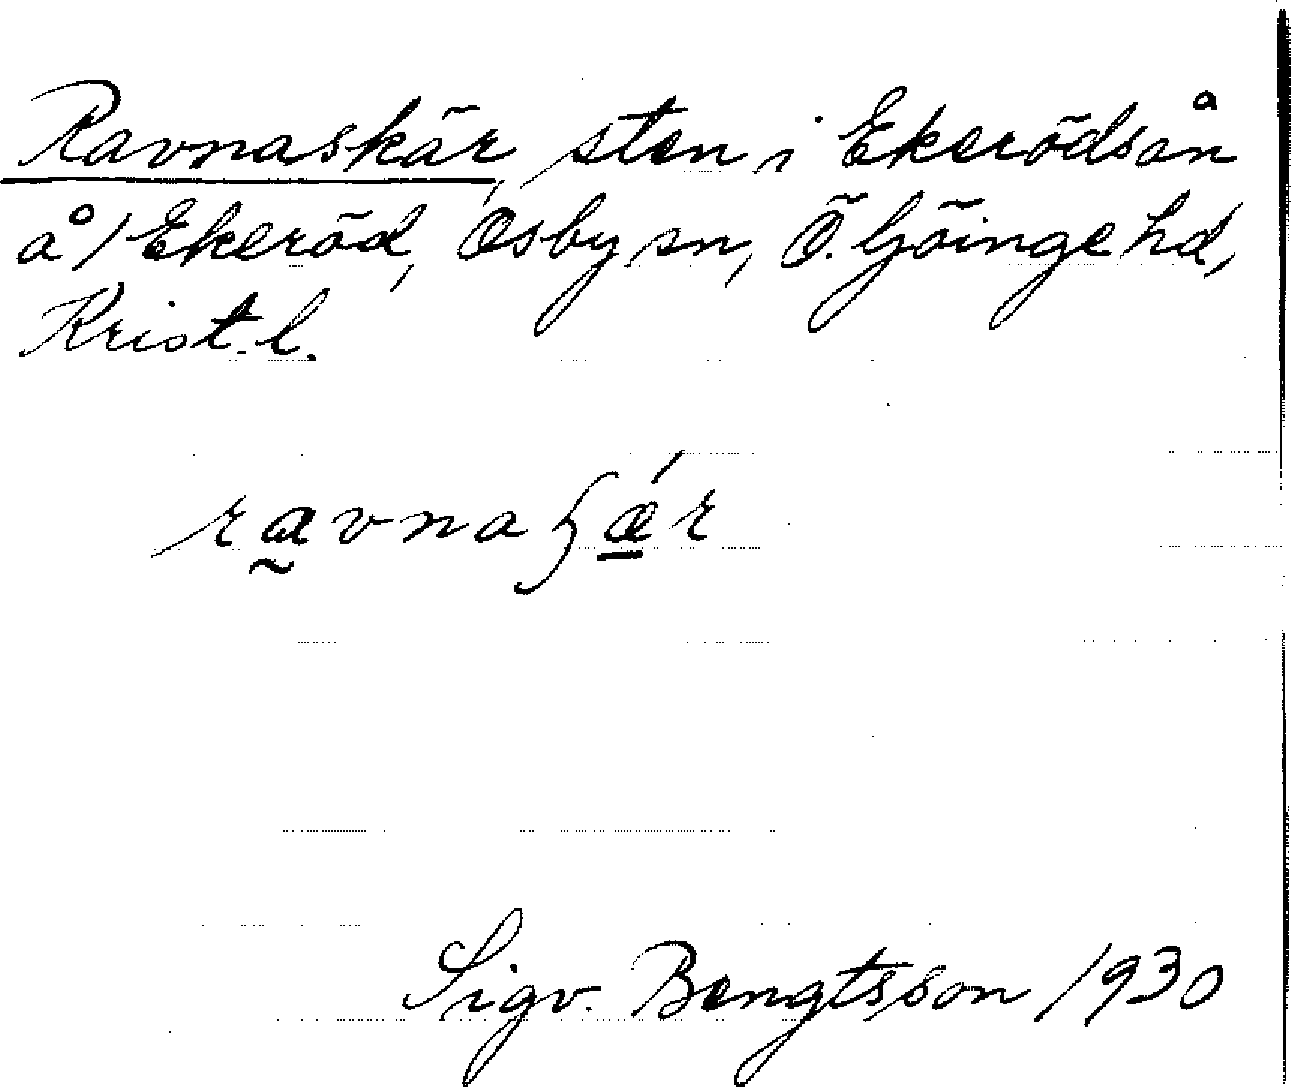 Ravnaskär, sten i Ekerödsån
å/Ekeröd, Osby sn, Ö. Göinge hd,
Krist. l.
ravnaʃǽr
Sigv. Bengtsson 1930